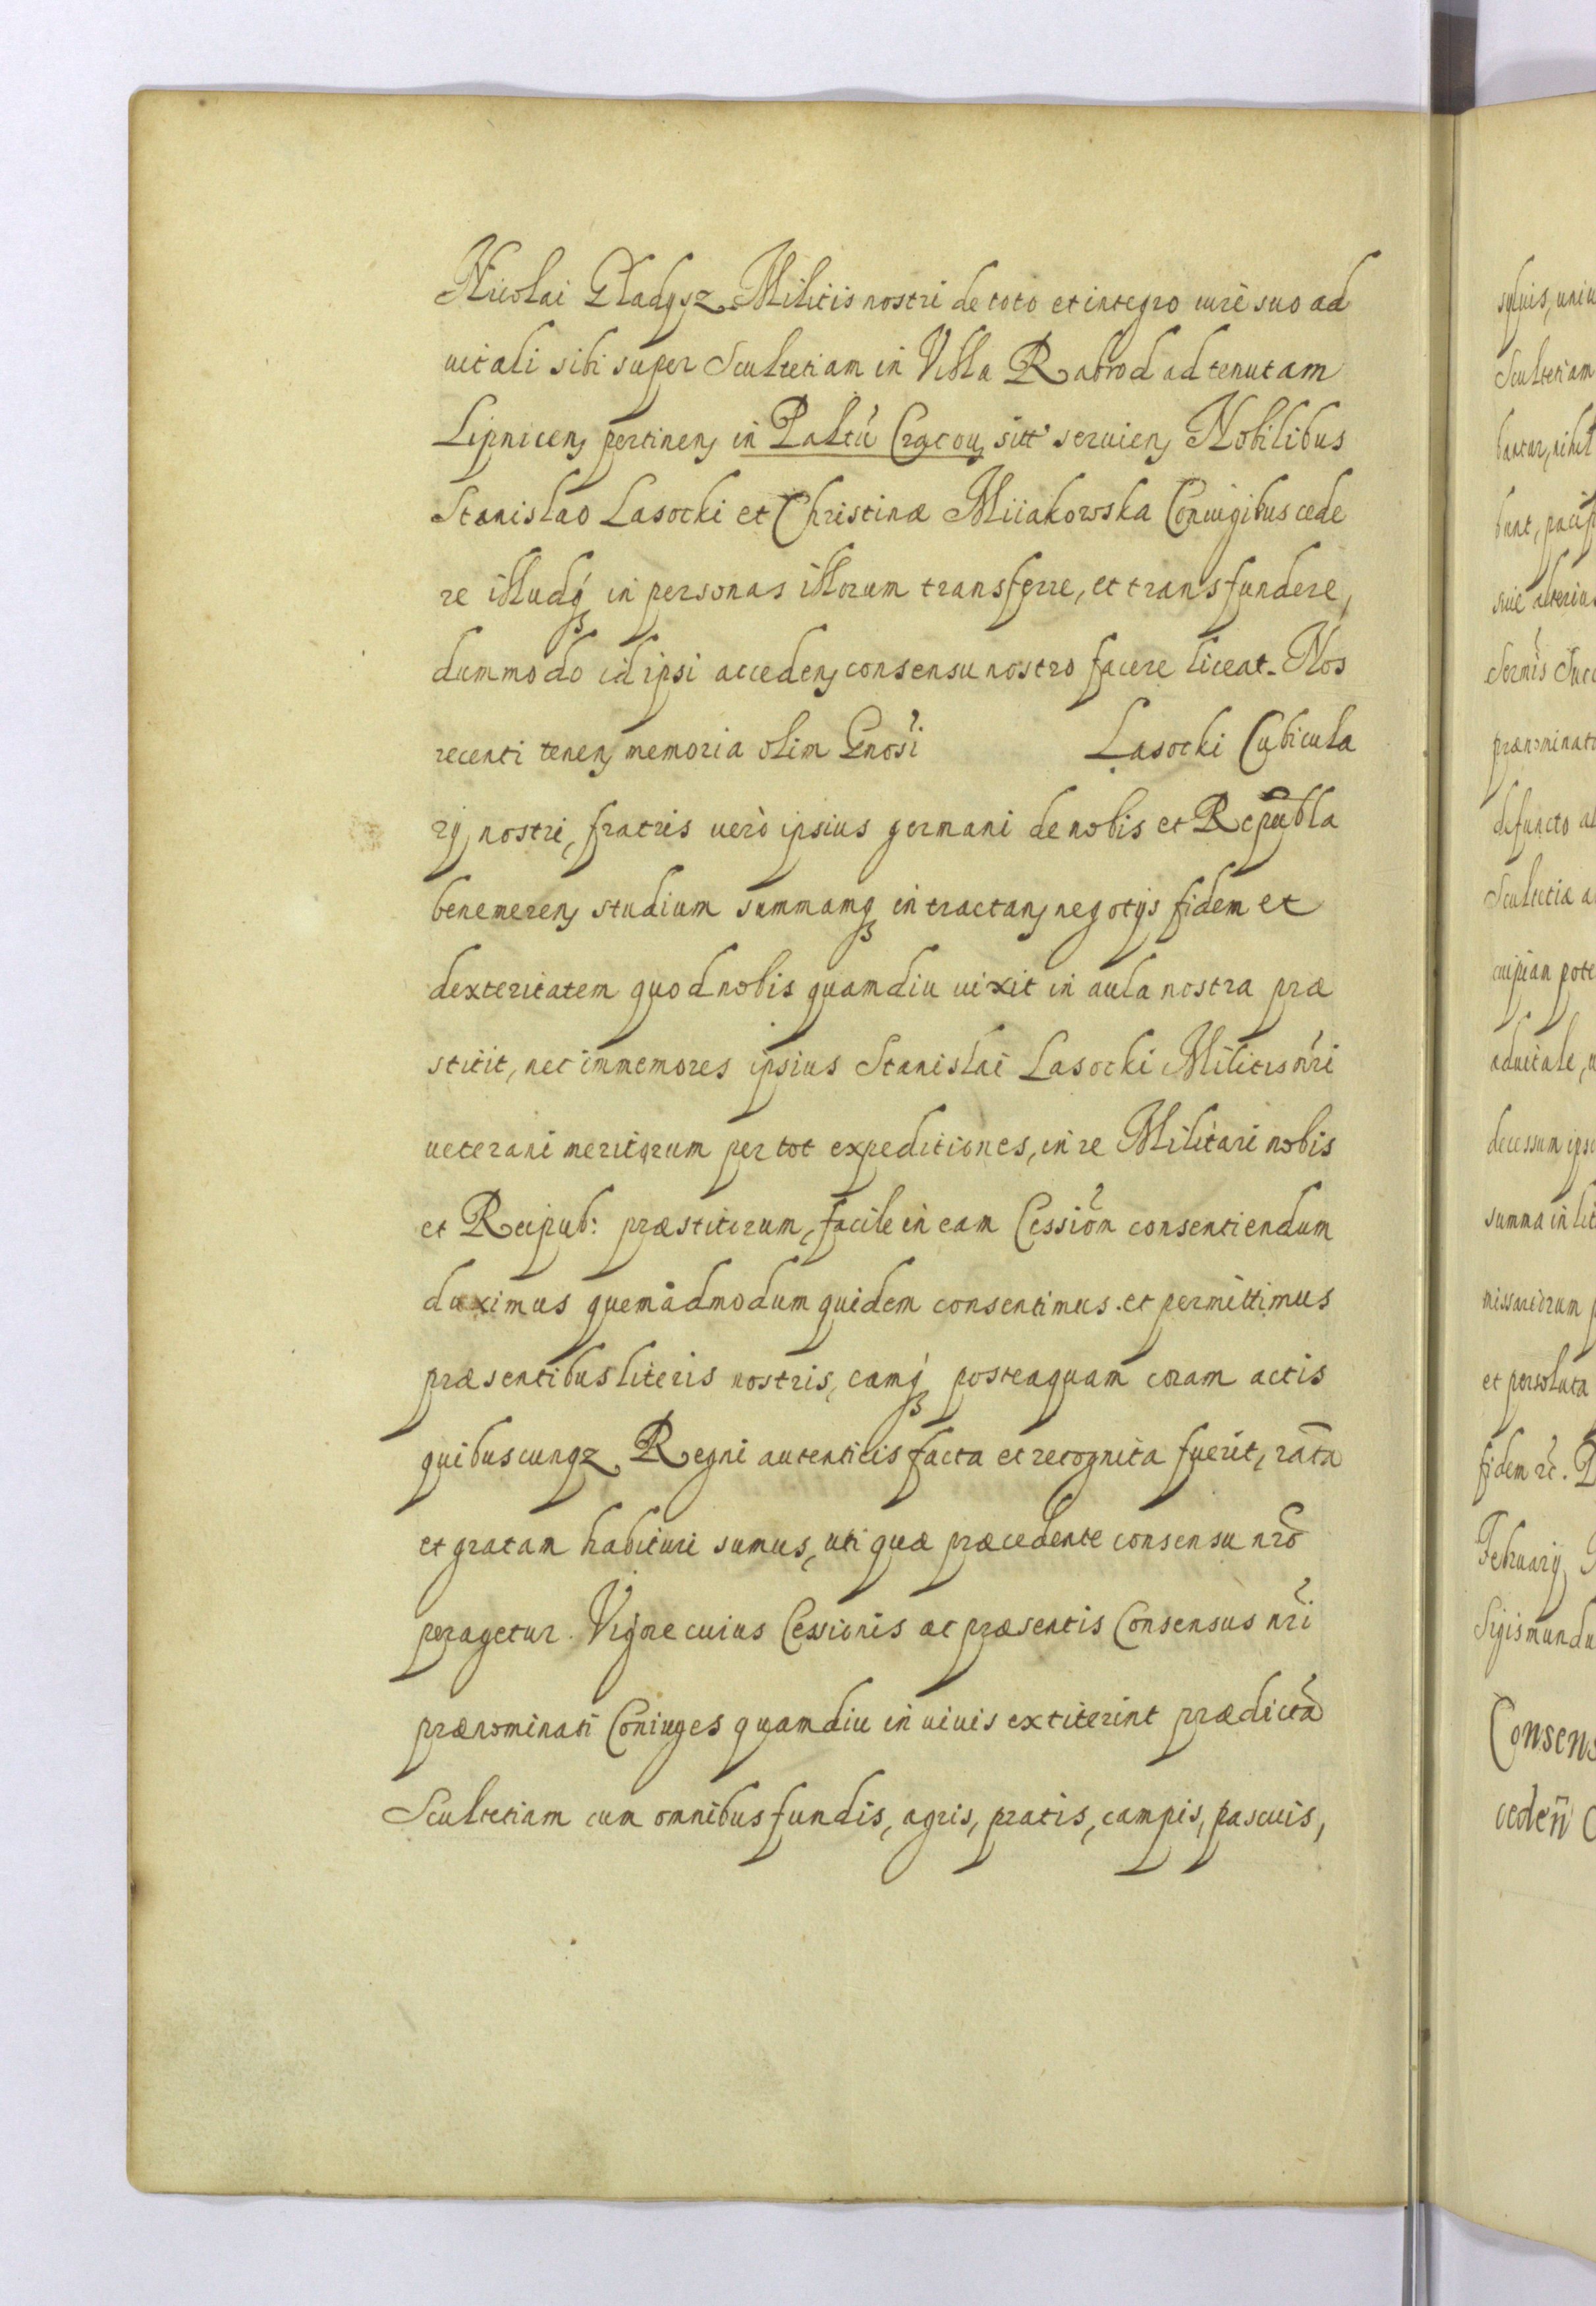 Nicolai Gladysz Militis nostri de toto et integro iure suo ad
uitali sibi super Scultetiam in Villa Rabrod ad tenutam
Lipnicen pertinen in Paltu Cracou sitt seruien Nobilibus
Stanislao Lasocki et Christinæ Miiakowska Coniugibus cede
re illudq in personas illorum transferre, et transfundere,
dummodo id ipsi acceden consensu nostro facere liceat. Nos
recenti tenen memoria olim Gnosi Lasocki Cubicula
rij nostri, fratris uerò ipsius germani de nobis et Republa
benemeren studium summamq in tractan negotijs fidem et
dexteritatem quod nobis quamdiu uixit in aula nostra præ
stitit, nec immemores ipsius Stanislai Lasocki Militis nri
ueterani meritorum per tot expeditiones, in re Militari nobis
et Reipub: præstitorum, facile in eam Cession consentiendum
duximus quemadmodum quidem consentimus. et permittimus
præsentibus literis nostris, eamq posteaquam coram actis
quibuscunqz Regni autenticis facta et recognita fuerit, rata
et gratam habituri sumus, uti quæ præcedente consensu nro
peragetur. Vigore cuius Cessionis ac præsentis Consensus nri
prænominati Coniuges quamdiu in uiuis extiterint prædicta
Scultetiam cum omnibus fundis, agris, pratis, campis, pascuis,
syluis,
Scultetiam
bantur, nihil
bunt,
siue alterius
prænominat
defuncto
Scultetiæ
aduitale,
decessum
summa in
et persoluta
fidem
February
Sigismundu
Consens
ceden